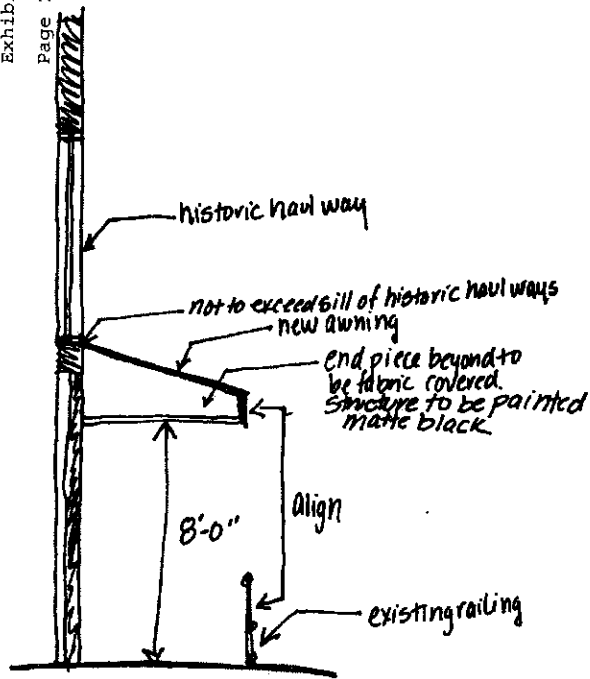 Exhib
Page
historic haul way
not to exceed sill of historic haul ways
new awning
end piece beyond to
be fabric covered.
structure to be painted
matte black
8'-0"
align
existing railing